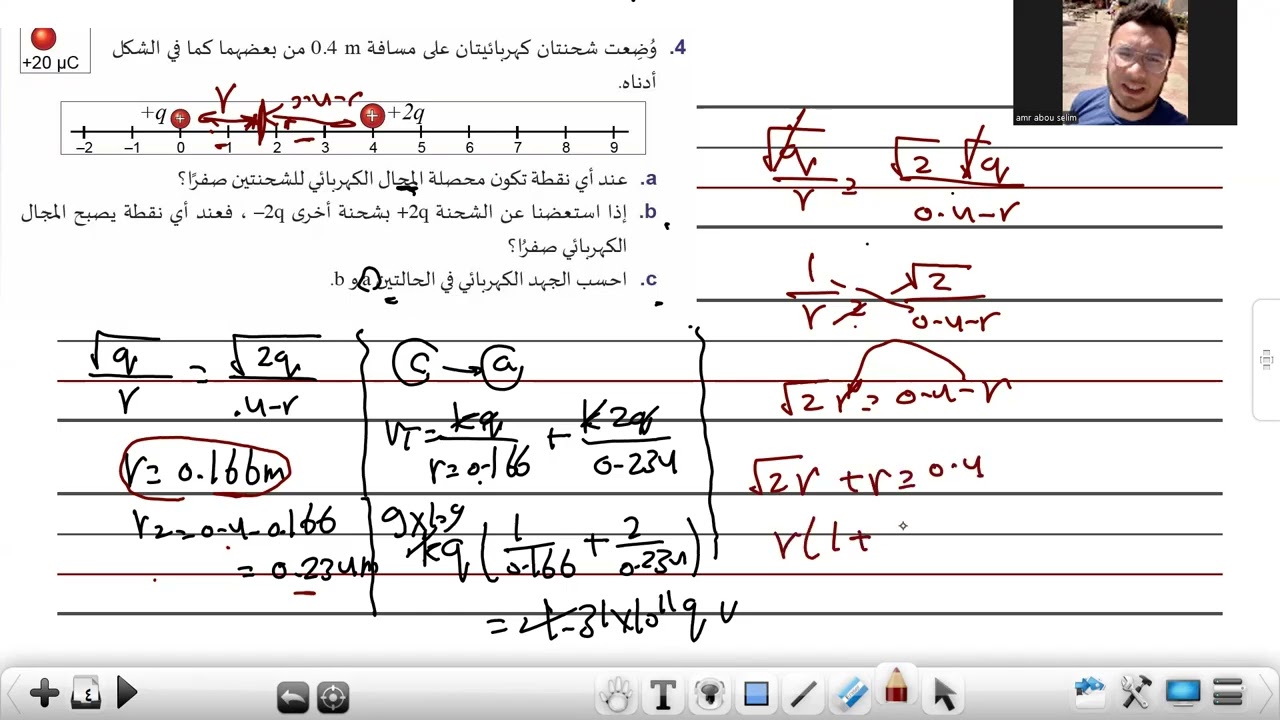 +20 µC
4. وُضِعت شحنتان كهربائيتان على مسافة 0.4 m من بعضهما كما في الشكل
أدناه.
r 0.4-r
+q +2q
-2 -1 0 1 2 3 4 5 6 7 8 9
a. عند أي نقطة تكون محصلة المجال الكهربائي للشحنتين صفرًا؟
b. إذا استعضنا عن الشحنة +2q بشحنة أخرى -2q ، فعند أي نقطة يصبح المجال
الكهربائي صفرًا؟
c. احسب الجهد الكهربائي في الحالتين a و b.
√q / r = √2q / .4-r
r = 0.166m
r2 = 0.4-0.166
= 0.234m
C → a
VT = kq / r=0.166 + k2q / 0.234
9×10^9
kq (1/0.166 + 2/0.234)
√q / r = √2 √q / 0.4-r
1 / r = √2 / 0.4-r
√2 r = 0.4-r
√2 r + r = 0.4
r(1+
amr abou selim